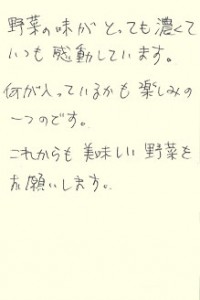 野菜の味が とっても 濃くて
いつも 感動しています。
何が入っているかも 楽しみの
一つのです。
これからも 美味しい 野菜を
お願いします。